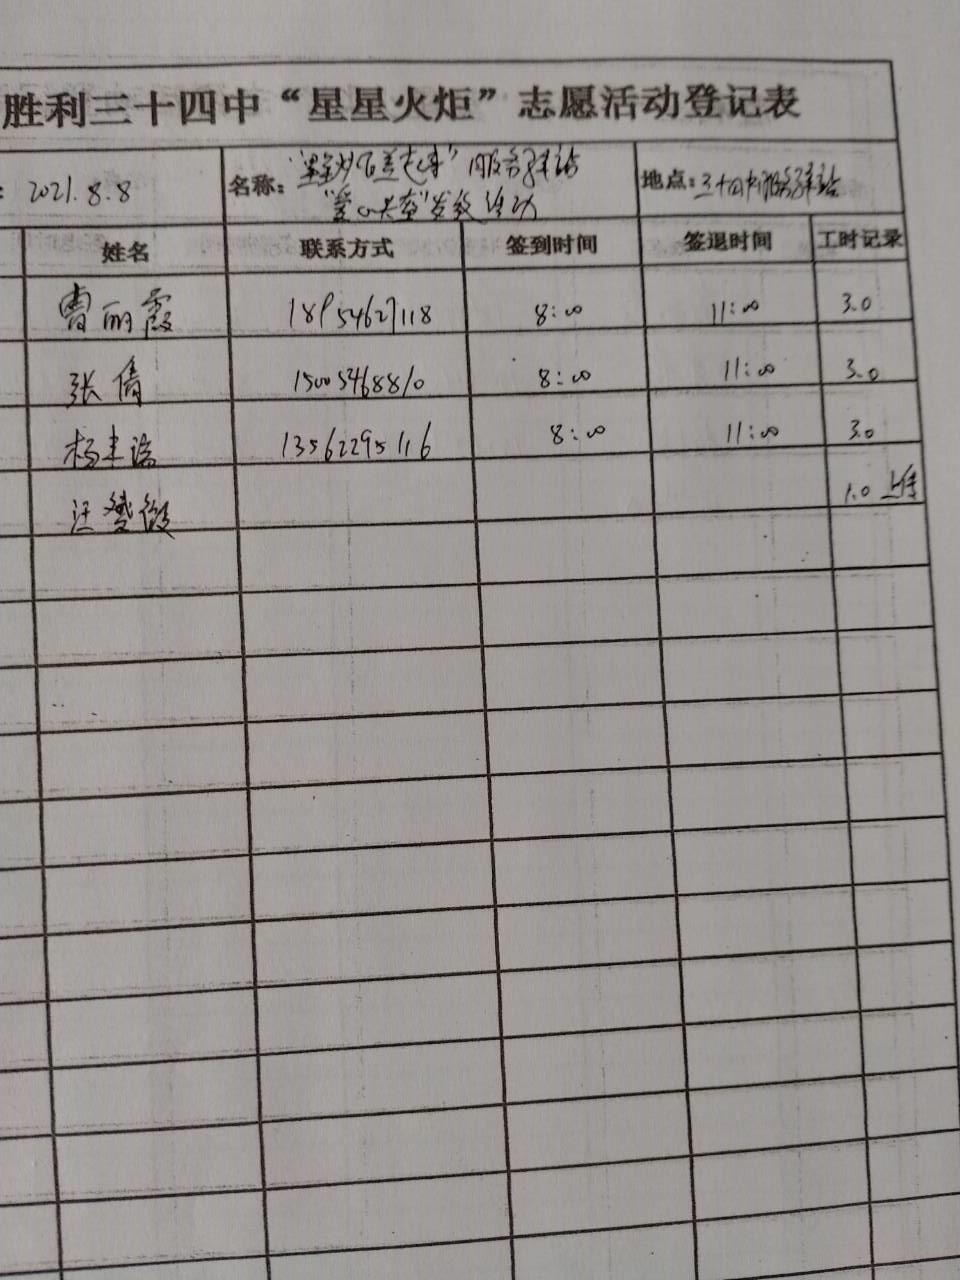 胜利三十四中“星星火炬”志愿活动登记表
: 2021.8.8
名称: 服务驿站
“爱心义 发放活动
地点: 三十四中服务驿站
姓名 联系方式 签到时间 签退时间 工时记录
曹丽霞 18954627118 8:00 11:00 3.0
张倩 15005468810 8:00 11:00 3.0
杨丰瑞 13562295116 8:00 11:00 3.0
汪 1.0 上传